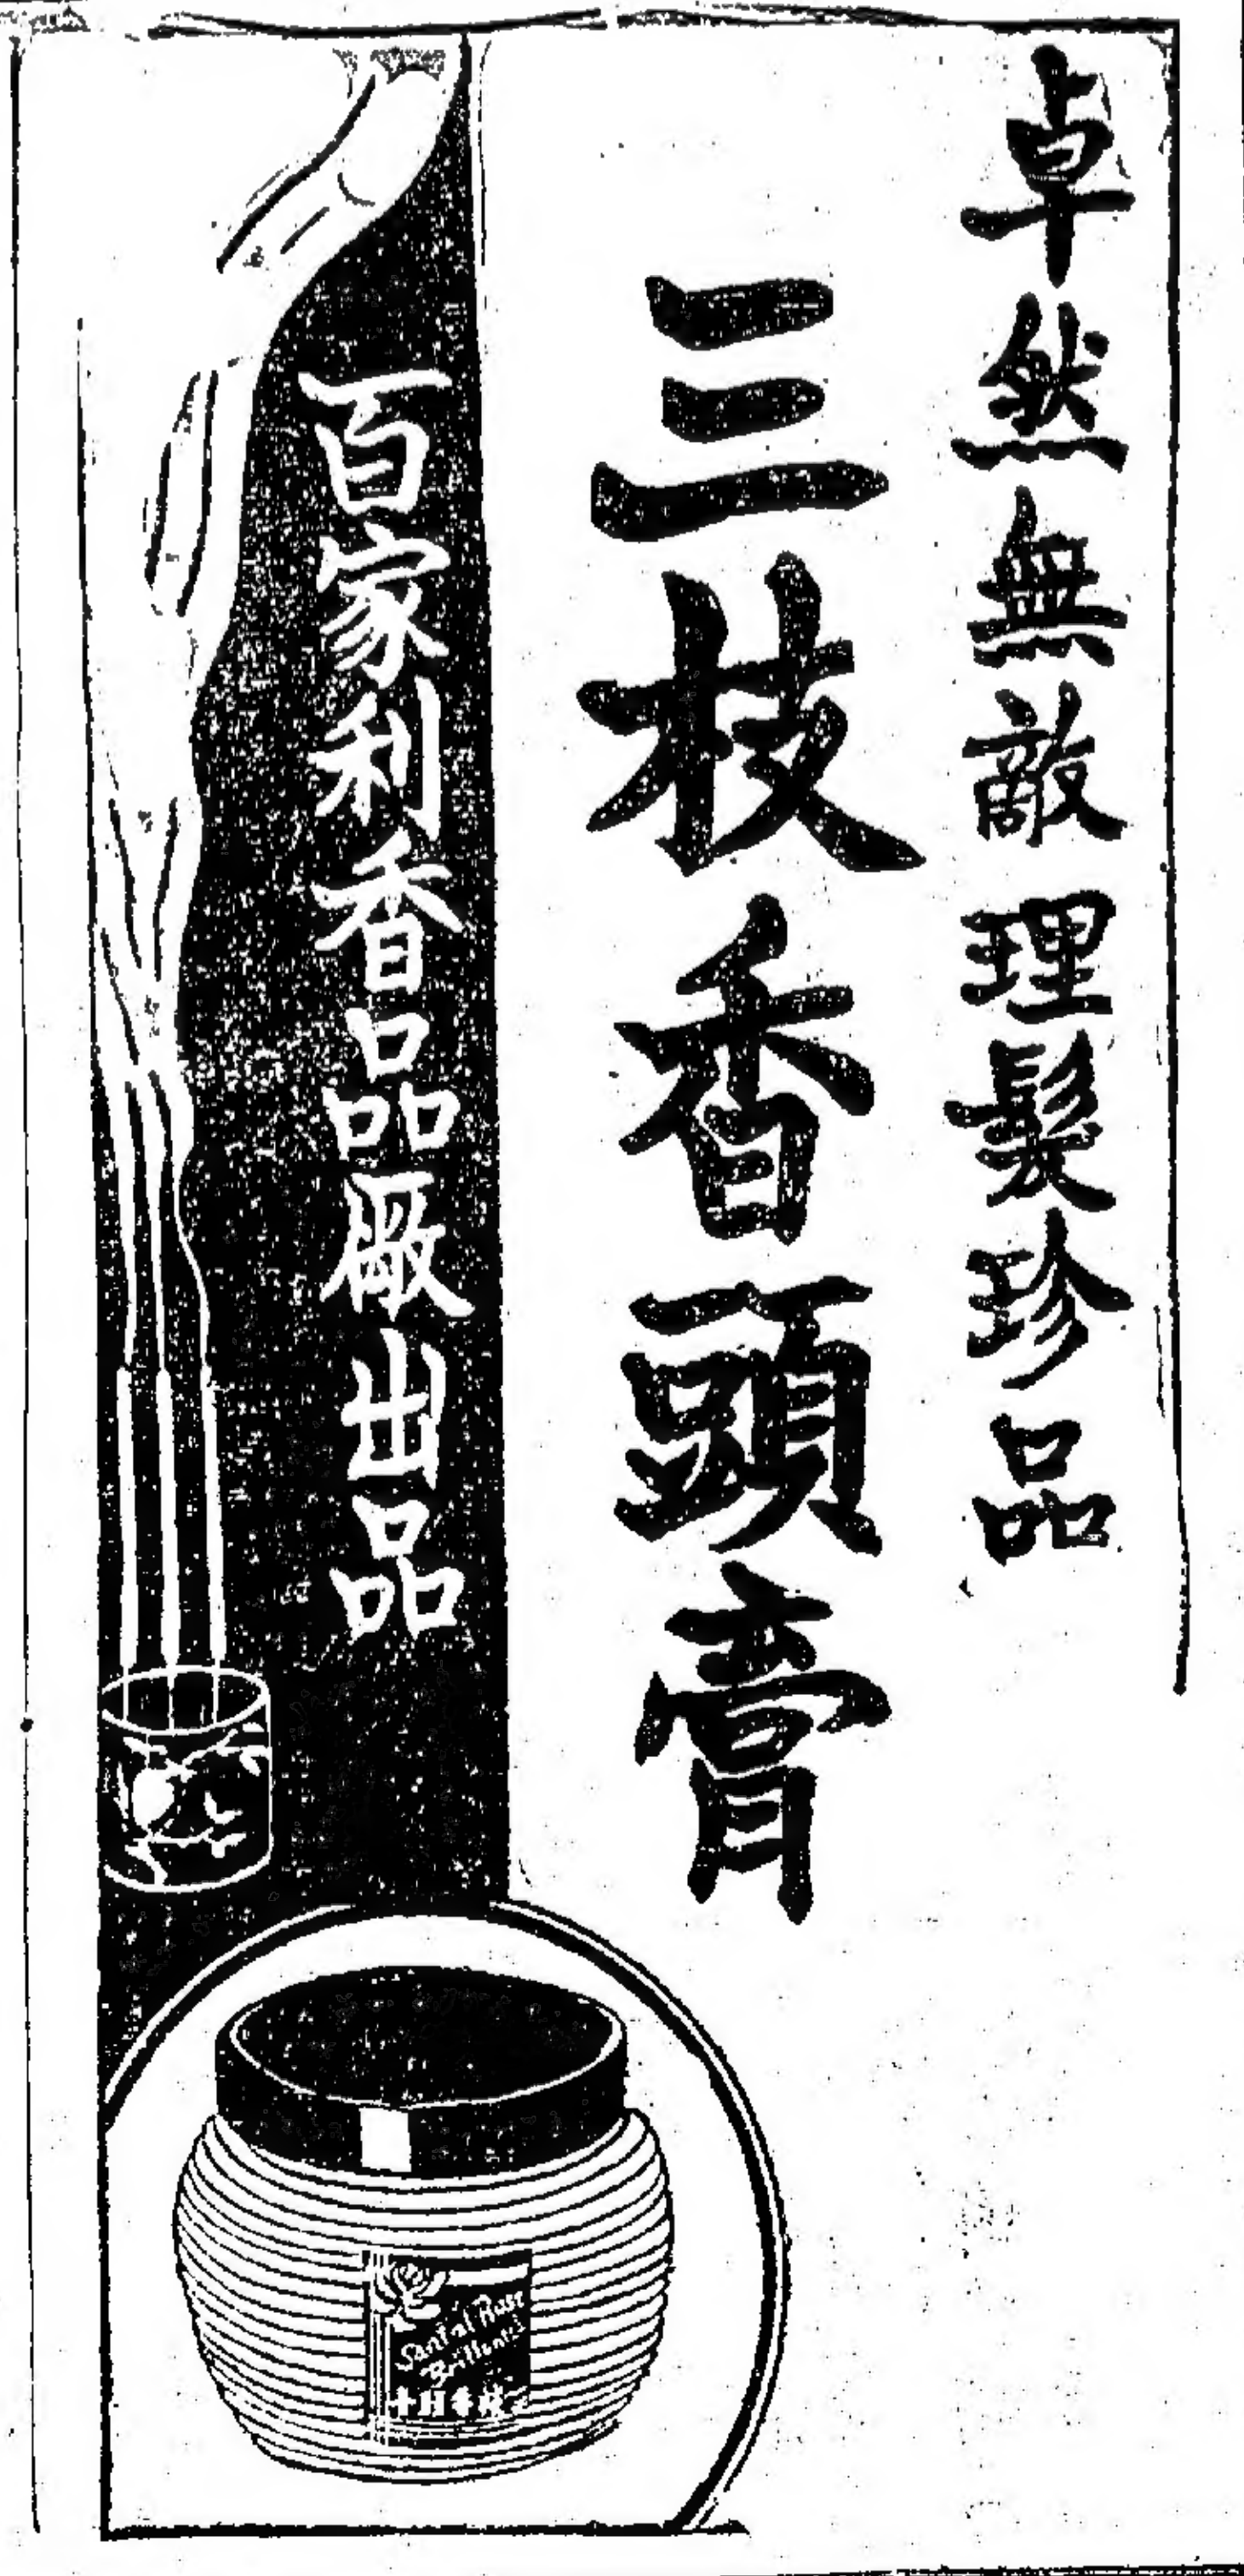 卓然無敵理髮珍品
三枝香頭膏
百家利香品廠出品
Santal Rose
Brillantine